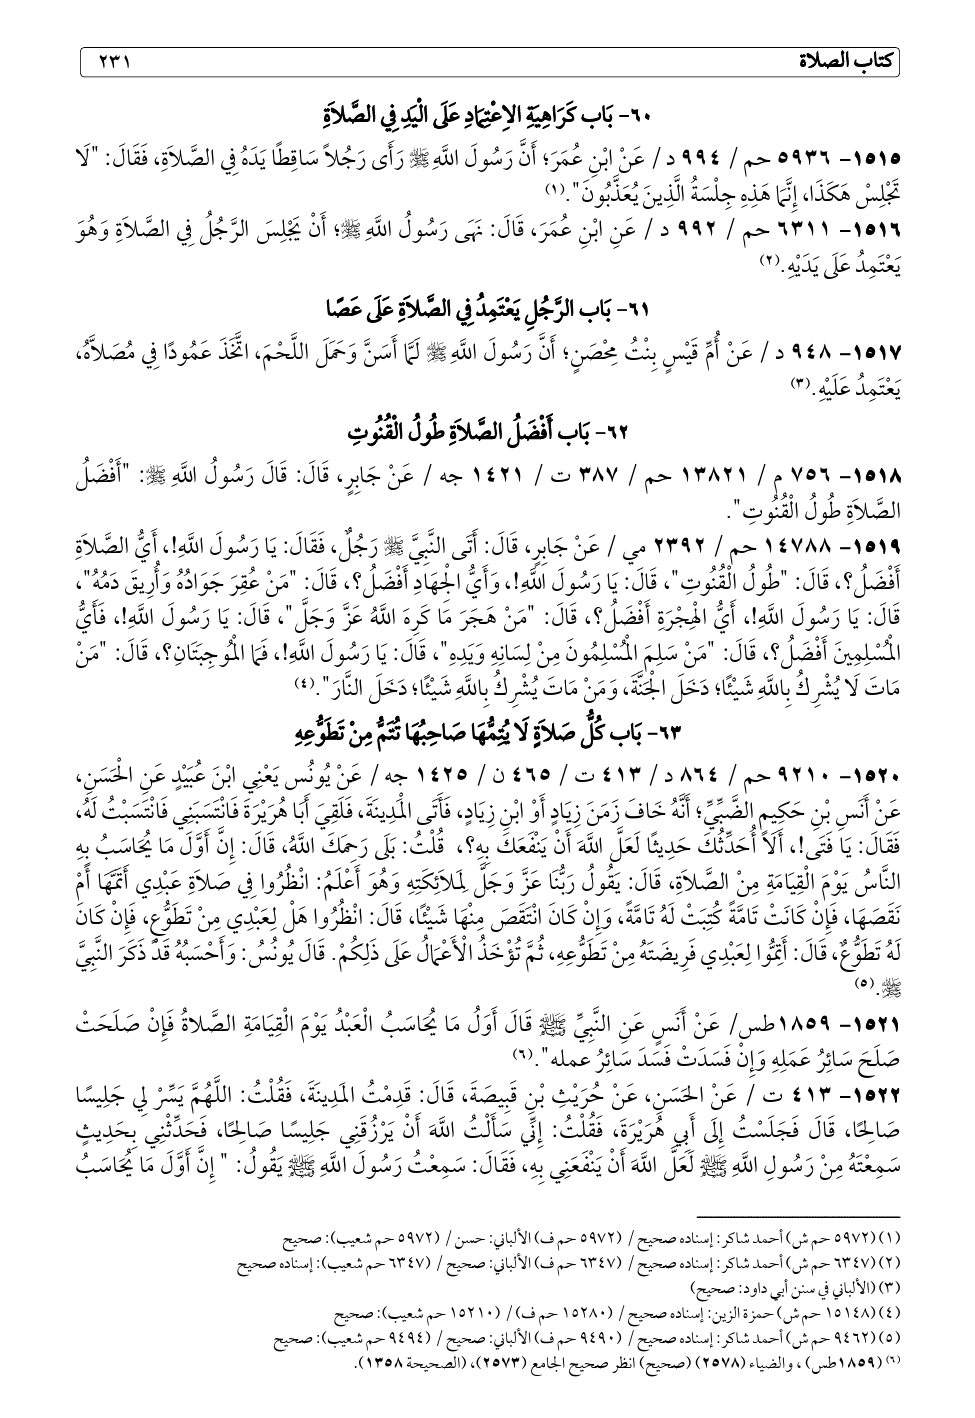 كتاب الصلاة ٢٣١
٦٠- بَاب كَرَاهِيَةِ الِاعْتِمَادِ عَلَى الْيَدِ فِي الصَّلاَةِ
١٥١٥- ٥٩٣٦ حم / ٩٩٤ د / عَنْ ابْنِ عُمَرَ؛ أَنَّ رَسُولَ اللَّهِ ﷺ رَأَى رَجُلاً سَاقِطًا يَدَهُ فِي الصَّلاَةِ، فَقَالَ: "لَا
تَجْلِسْ هَكَذَا، إِنَّمَا هَذِهِ جِلْسَةُ الَّذِينَ يُعَذَّبُونَ".(١)
١٥١٦- ٦٣١١ حم / ٩٩٢ د / عَنِ ابْنِ عُمَرَ، قَالَ: نَهَى رَسُولُ اللَّهِ ﷺ؛ أَنْ يَجْلِسَ الرَّجُلُ فِي الصَّلاَةِ وَهُوَ
يَعْتَمِدُ عَلَى يَدَيْهِ.(٢)
٦١- بَاب الرَّجُلِ يَعْتَمِدُ فِي الصَّلاَةِ عَلَى عَصًا
١٥١٧- ٩٤٨ د / عَنْ أُمِّ قَيْسٍ بِنْتُ مِحْصَنٍ؛ أَنَّ رَسُولَ اللَّهِ ﷺ لَمَّا أَسَنَّ وَحَمَلَ اللَّحْمَ، اتَّخَذَ عَمُودًا فِي مُصَلاَّهُ،
يَعْتَمِدُ عَلَيْهِ.(٣)
٦٢- بَاب أَفْضَلُ الصَّلاَةِ طُولُ الْقُنُوتِ
١٥١٨- ٧٥٦ م / ١٣٨٢١ حم / ٣٨٧ ت / ١٤٢١ جه / عَنْ جَابِرٍ، قَالَ: قَالَ رَسُولُ اللَّهِ ﷺ: "أَفْضَلُ
الصَّلاَةِ طُولُ الْقُنُوتِ".
١٥١٩- ١٤٧٨٨ حم / ٢٣٩٢ مي / عَنْ جَابِرٍ، قَالَ: أَتَى النَّبِيَّ ﷺ رَجُلٌ، فَقَالَ: يَا رَسُولَ اللَّهِ!، أَيُّ الصَّلاَةِ
أَفْضَلُ؟، قَالَ: "طُولُ الْقُنُوتِ"، قَالَ: يَا رَسُولَ اللَّهِ!، وَأَيُّ الْجِهَادِ أَفْضَلُ؟، قَالَ: "مَنْ عُقِرَ جَوَادُهُ وَأُرِيقَ دَمُهُ"،
قَالَ: يَا رَسُولَ اللَّهِ!، أَيُّ الْهِجْرَةِ أَفْضَلُ؟، قَالَ: "مَنْ هَجَرَ مَا كَرِهَ اللَّهُ عَزَّ وَجَلَّ"، قَالَ: يَا رَسُولَ اللَّهِ!، فَأَيُّ
الْمُسْلِمِينَ أَفْضَلُ؟، قَالَ: "مَنْ سَلِمَ الْمُسْلِمُونَ مِنْ لِسَانِهِ وَيَدِهِ"، قَالَ: يَا رَسُولَ اللَّهِ!، فَمَا الْمُوجِبَتَانِ؟، قَالَ: "مَنْ
مَاتَ لَا يُشْرِكُ بِاللَّهِ شَيْئًا؛ دَخَلَ الْجَنَّةَ، وَمَنْ مَاتَ يُشْرِكُ بِاللَّهِ شَيْئًا؛ دَخَلَ النَّارَ".(٤)
٦٣- بَاب كُلُّ صَلاَةٍ لَا يُتِمُّهَا صَاحِبُهَا تُتَمُّ مِنْ تَطَوُّعِهِ
١٥٢٠- ٩٢١٠ حم / ٨٦٤ د / ٤١٣ ت / ٤٦٥ ن / ١٤٢٥ جه / عَنْ يُونُس يَعْنِي ابْنَ عُبَيْدٍ عَنِ الْحَسَنِ،
عَنْ أَنَسِ بْنِ حَكِيمٍ الضَّبِّيِّ؛ أَنَّهُ خَافَ زَمَنَ زِيَادٍ أَوْ ابْنِ زِيَادٍ، فَأَتَى الْمَدِينَةَ، فَلَقِيَ أَبَا هُرَيْرَةَ فَانْتَسَبَنِي فَانْتَسَبْتُ لَهُ،
فَقَالَ: يَا فَتَى!، أَلاَ أُحَدِّثُكَ حَدِيثًا لَعَلَّ اللَّهَ أَنْ يَنْفَعَكَ بِهِ؟، قُلْتُ: بَلَى رَحِمَكَ اللَّهُ، قَالَ: إِنَّ أَوَّلَ مَا يُحَاسَبُ بِهِ
النَّاسُ يَوْمَ الْقِيَامَةِ مِنْ الصَّلاَةِ، قَالَ: يَقُولُ رَبُّنَا عَزَّ وَجَلَّ لِمَلاَئِكَتِهِ وَهُوَ أَعْلَمُ: انْظُرُوا فِي صَلاَةِ عَبْدِي أَتَمَّهَا أَمْ
نَقَصَهَا، فَإِنْ كَانَتْ تَامَّةً كُتِبَتْ لَهُ تَامَّةً، وَإِنْ كَانَ انْتَقَصَ مِنْهَا شَيْئًا، قَالَ: انْظُرُوا هَلْ لِعَبْدِي مِنْ تَطَوُّعٍ، فَإِنْ كَانَ
لَهُ تَطَوُّعٌ، قَالَ: أَتِمُّوا لِعَبْدِي فَرِيضَتَهُ مِنْ تَطَوُّعِهِ، ثُمَّ تُؤْخَذُ الْأَعْمَالُ عَلَى ذَلِكُمْ. قَالَ يُونُسُ: وَأَحْسَبُهُ قَدْ ذَكَرَ النَّبِيَّ
ﷺ.(٥)
١٥٢١- ١٨٥٩طس/ عَنْ أَنَسٍ عَنِ النَّبِيِّ ﷺ قَالَ أَوَّلُ مَا يُحَاسَبُ الْعَبْدُ يَوْمَ الْقِيَامَةِ الصَّلاةُ فَإِنْ صَلَحَتْ
صَلَحَ سَائِرُ عَمَلِهِ وَإِنْ فَسَدَتْ فَسَدَ سَائِرُ عمله".(٦)
١٥٢٢- ٤١٣ ت / عَنْ الْحَسَنِ، عَنْ حُرَيْثِ بْنِ قَبِيصَةَ، قَالَ: قَدِمْتُ الْمَدِينَةَ، فَقُلْتُ: اللَّهُمَّ يَسِّرْ لِي جَلِيسًا
صَالِحًا، قَالَ فَجَلَسْتُ إِلَى أَبِي هُرَيْرَةَ، فَقُلْتُ: إِنِّي سَأَلْتُ اللَّهَ أَنْ يَرْزُقَنِي جَلِيسًا صَالِحًا، فَحَدِّثْنِي بِحَدِيثٍ
سَمِعْتَهُ مِنْ رَسُولِ اللَّهِ ﷺ لَعَلَّ اللَّهَ أَنْ يَنْفَعَنِي بِهِ، فَقَالَ: سَمِعْتُ رَسُولَ اللَّهِ ﷺ يَقُولُ: " إِنَّ أَوَّلَ مَا يُحَاسَبُ
(١) (٥٩٧٢ حم ش) أحمد شاكر: إسناده صحيح / (٥٩٧٢ حم ف) الألباني: حسن / (٥٩٧٢ حم شعيب): صحيح
(٢) (٦٣٤٧ حم ش) أحمد شاكر: إسناده صحيح / (٦٣٤٧ حم ف) الألباني: صحيح / (٦٣٤٧ حم شعيب): إسناده صحيح
(٣) (الألباني في سنن أبي داود: صحيح)
(٤) (١٥١٤٨ حم ش) حمزة الزين: إسناده صحيح / (١٥٢٨٠ حم ف)/ (١٥٢١٠ حم شعيب): صحيح
(٥) (٩٤٦٢ حم ش) أحمد شاكر: إسناده صحيح / (٩٤٩٠ حم ف) الألباني: صحيح / (٩٤٩٤ حم شعيب): صحيح
(٦) (١٨٥٩طس) ، والضياء (٢٥٧٨) (صحيح) انظر صحيح الجامع (٢٥٧٣)، (الصحيحة ١٣٥٨).